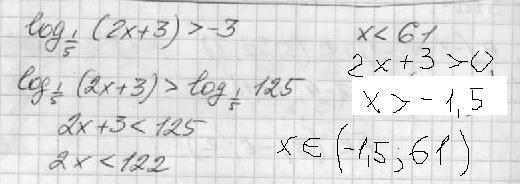 log_{1/5} (2x+3) > -3
log_{1/5} (2x+3) > log_{1/5} 125
2x+3 < 125
2x < 122
x < 61
2x+3 > 0
x > -1,5
x ∈ (-1,5; 61)